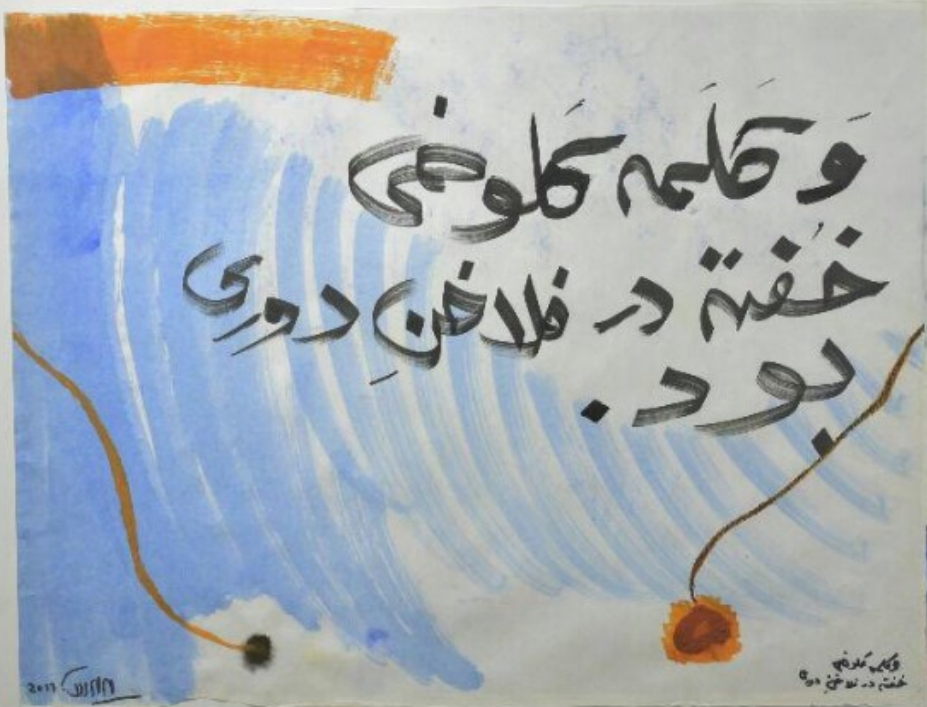 وَ کلَمه کَلوخی
خُفته در فلاخنِ دوری
بود.
وکلمه کلوخی
خفته در فلاخنِ دوری
2017